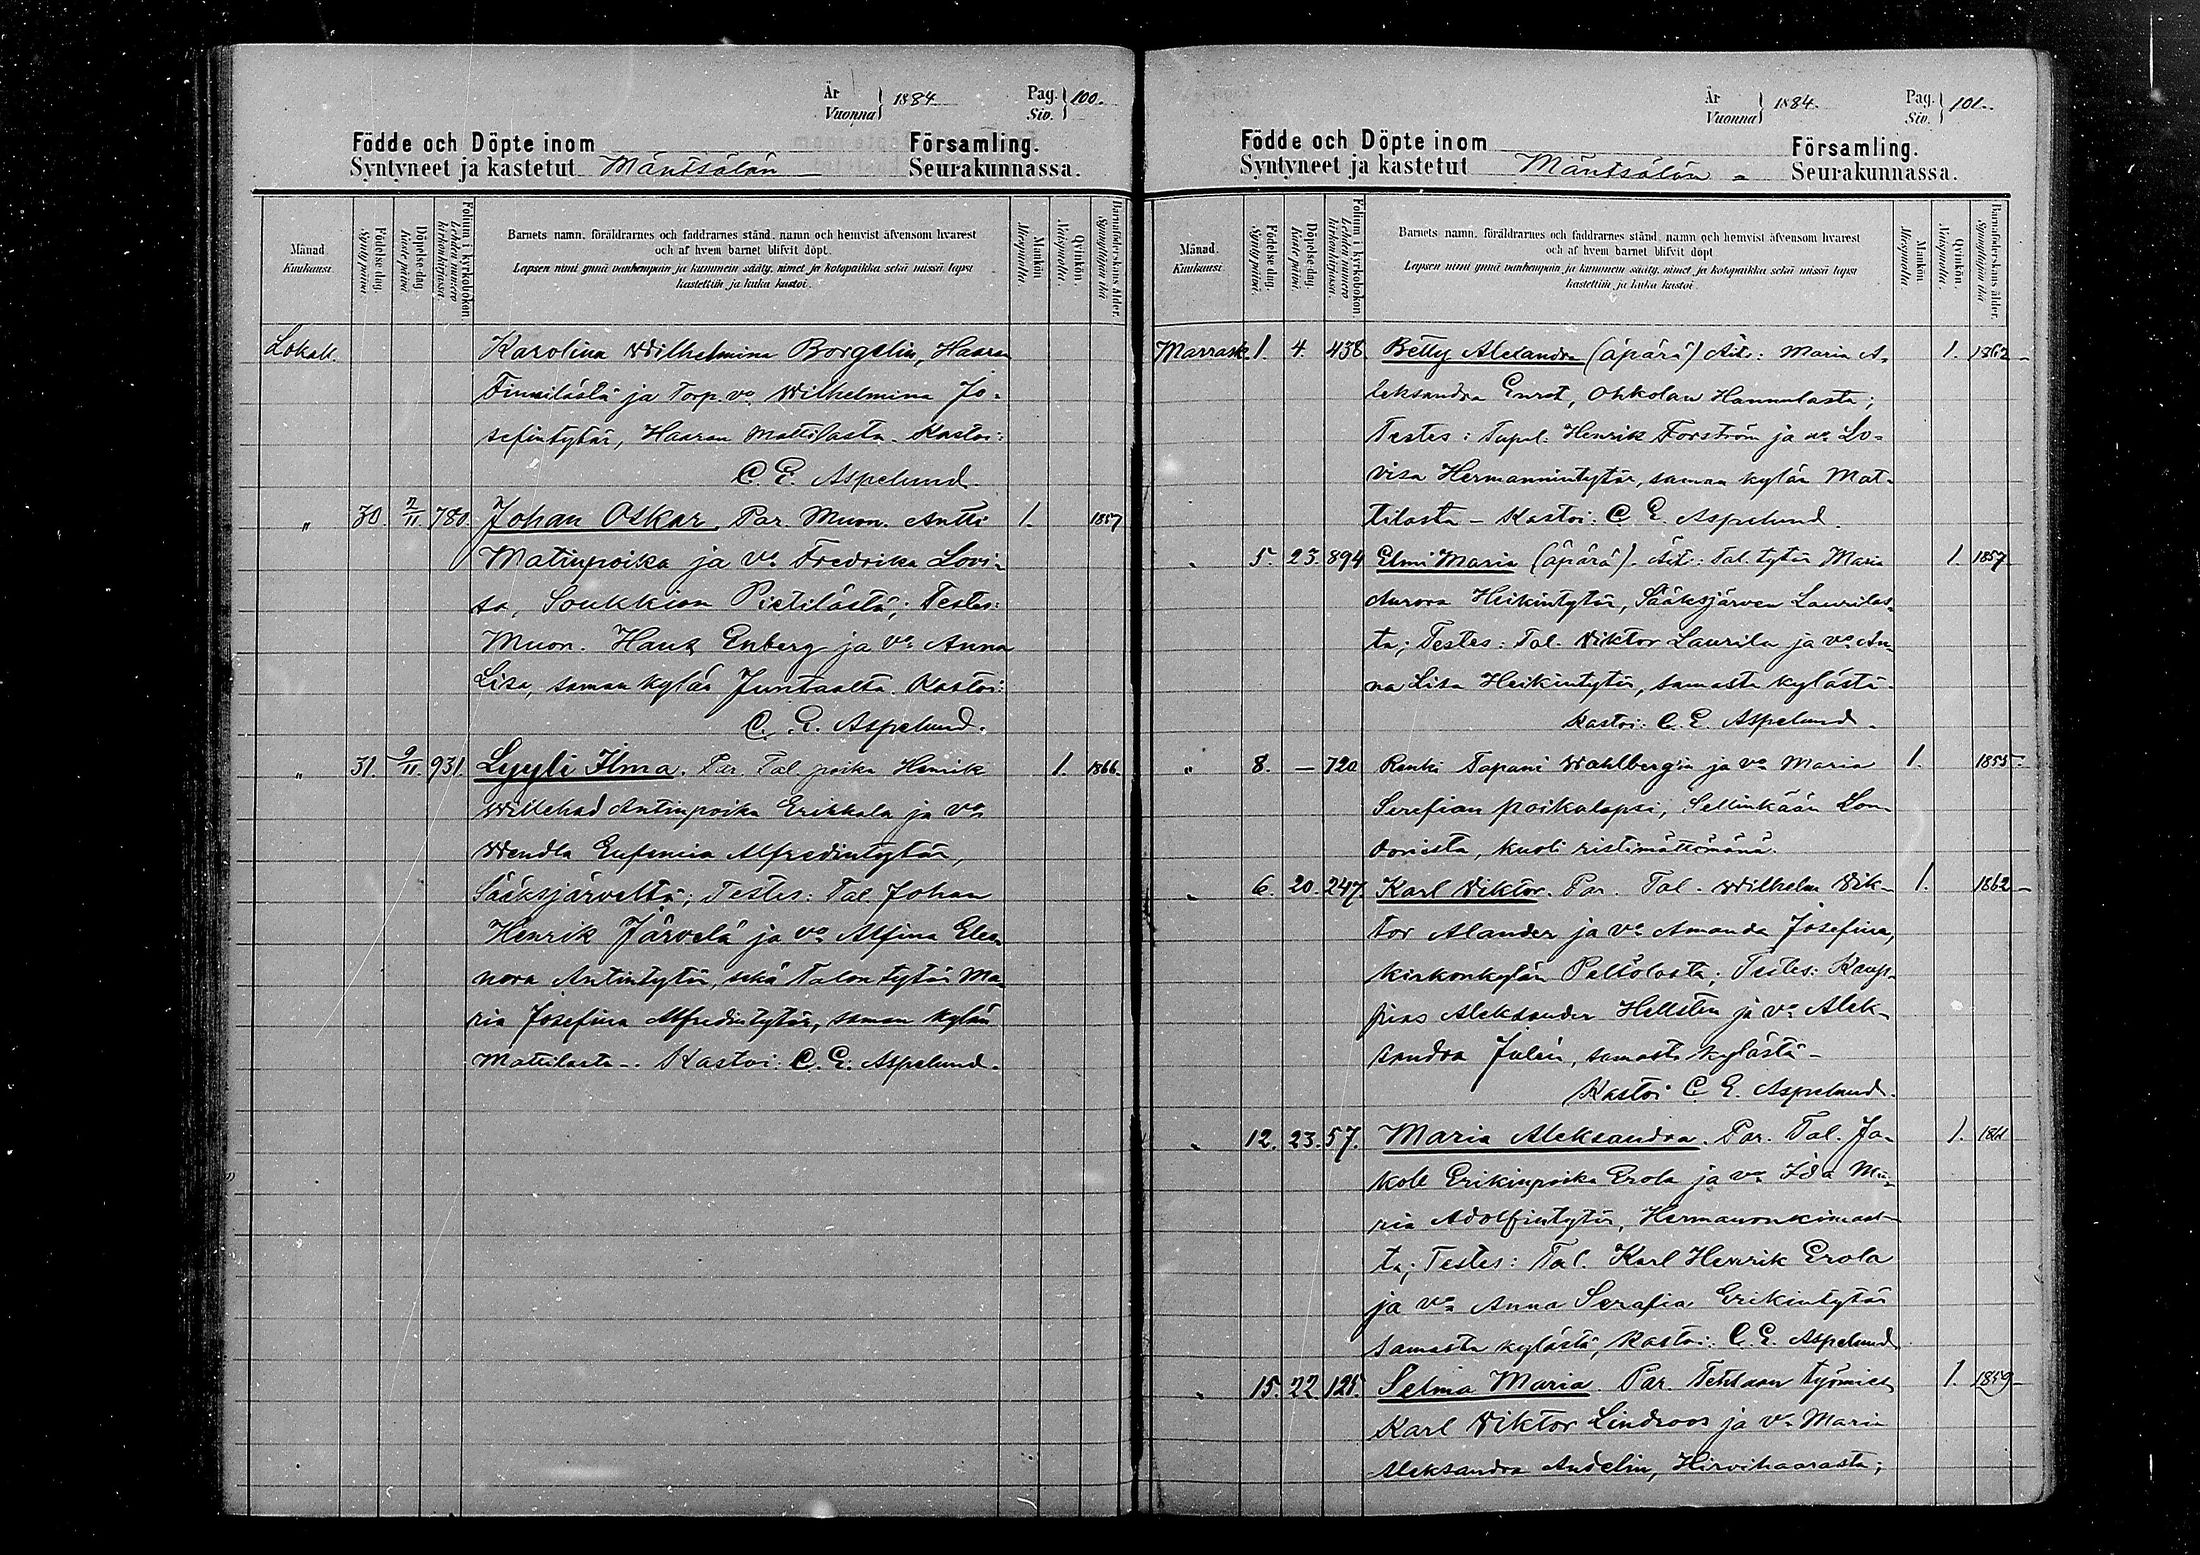 År
Vuonna } 1884
Pag.
Siv. } 100.
Födde och Döpte inom Församling.
Syntyneet ja kastetut Mäntsälän Seurakunnassa.
Månad.
Kuukausi.
Födelse dag.
Synty päivä.
Döpelse-dag.
Kaste päivä.
Folium i kyrkoboken.
Lehden numero kirkonkirjassa.
Barnets namn, föräldrarnes och faddrarnes stånd, namn och hemvist äfvensom hvarest
och af hvem barnet blifvit döpt.
Lapsen nimi ynnä vanhempain ja kummein sääty, nimet ja kotopaikka sekä missä lapsi
kastettiin ja kuka kastoi.
Mankön.
Miespuolia.
Qvinkön.
Naispuolia.
Barnaföderskans ålder.
Synnyttäjän ikä.
Lokak. Karolina Wilhelmina Borgelin, Haaran
Finnilästä ja Torp. vo Wilhelmina Jo-
sefintytär, Haaran Mattilasta. Kastoi:
C. E. Aspelund.
" 30. 2/11 780. Johan Oskar. Par. Muon. Antti 1. 1857
Matinpoika ja vo Fredrika Lovi-
sa, Soukkion Pietilästä; Testes:
Muon. Hans Enberg ja vo Anna
Lisa, saman kylän Juntaalta. Kastoi:
C. E. Aspelund.
" 31. 9/11 931. Lyyli Ilma. Par. Tal. poika Henrik 1. 1866
Willehad Antinpoika Erikkala ja vo
Wendla Eufemia Alfredintytär,
Sääksjärveltä; Testes: Tal. Johan
Henrik Järvelä ja vo Alfina Eleo-
nora Antintytär, sekä Talon tytär Ma-
ria Josefina Alfredintytär, saman kylän
Mattilasta. Kastoi: C. E. Aspelund.
År
Vuonna } 1884
Pag.
Siv. } 101.
Födde och Döpte inom Församling.
Syntyneet ja kastetut Mäntsälän Seurakunnassa.
Månad.
Kuukausi.
Födelse dag.
Synty päivä.
Döpelse-dag.
Kaste päivä.
Folium i kyrkoboken.
Lehden numero kirkonkirjassa.
Barnets namn, föräldrarnes och faddrarnes stånd, namn och hemvist äfvensom hvarest
och af hvem barnet blifvit döpt
Lapsen nimi ynnä vanhempain ja kummein sääty, nimet ja kotopaikka sekä missä lapsi
kastettiin ja kuka kastoi.
Mankön.
Miespuolia.
Qvinkön.
Naispuolia.
Barnaföderskans ålder.
Synnyttäjän ikä.
Marrask. 1. 4. 438 Betty Alexandra (äpärä) Äiti: Maria A- 1. 1862
leksandra Enret, Ohkolan Hannulasta;
Testes: Henrik Forström ja vo Lo-
visa Hermannintytär, saman kylän Mat-
tilasta – Kastoi: C. E. Aspelund.
" 5. 23. 894 Elmi Maria (äpärä). Äiti: Tal. tytär Maria 1. 1857
Aurora Heikintytär, Sääksjärven Laurilas-
ta; Testes: Tal. Viktor Laurila ja vo An-
na Lisa Heikintytär, samasta kylästä.
Kastoi: C. E. Aspelund.
" 8. – 720 Renki Tapani Wahlbergin ja vo Maria 1. 1855
Serefian poikalapsi, Sellinkään Lon-
doonista, kuoli ristimättömänä.
" 6. 20. 247. Karl Viktor. Par. Tal. Wilhelm Vik- 1. 1862
tor Alander ja vo Amanda Josefina,
kirkonkylän Peltolasta; Testes: Kaup-
pias Aleksander Hellsten ja vo Alek-
sandra Julin, samasta kylästä –
Kastoi C. E. Aspelund.
" 12. 23. 57. Maria Aleksandra. Par. Tal. Ja- 1.
kob Erikinpoika Erola ja vo Ida Ma-
ria Adolfintytär,
ta; Testes: Tal. Karl Henrik Erola
ja vo Anna Serafia Erikintytär
samasta kylästä, Kastoi: C. E. Aspelund
" 15. 22 125. Selma Maria. Par. Tehtaan työmies 1. 1859
Karl Viktor Lindroos ja vo Maria
Aleksandra Andelin, Hirvihaarasta;